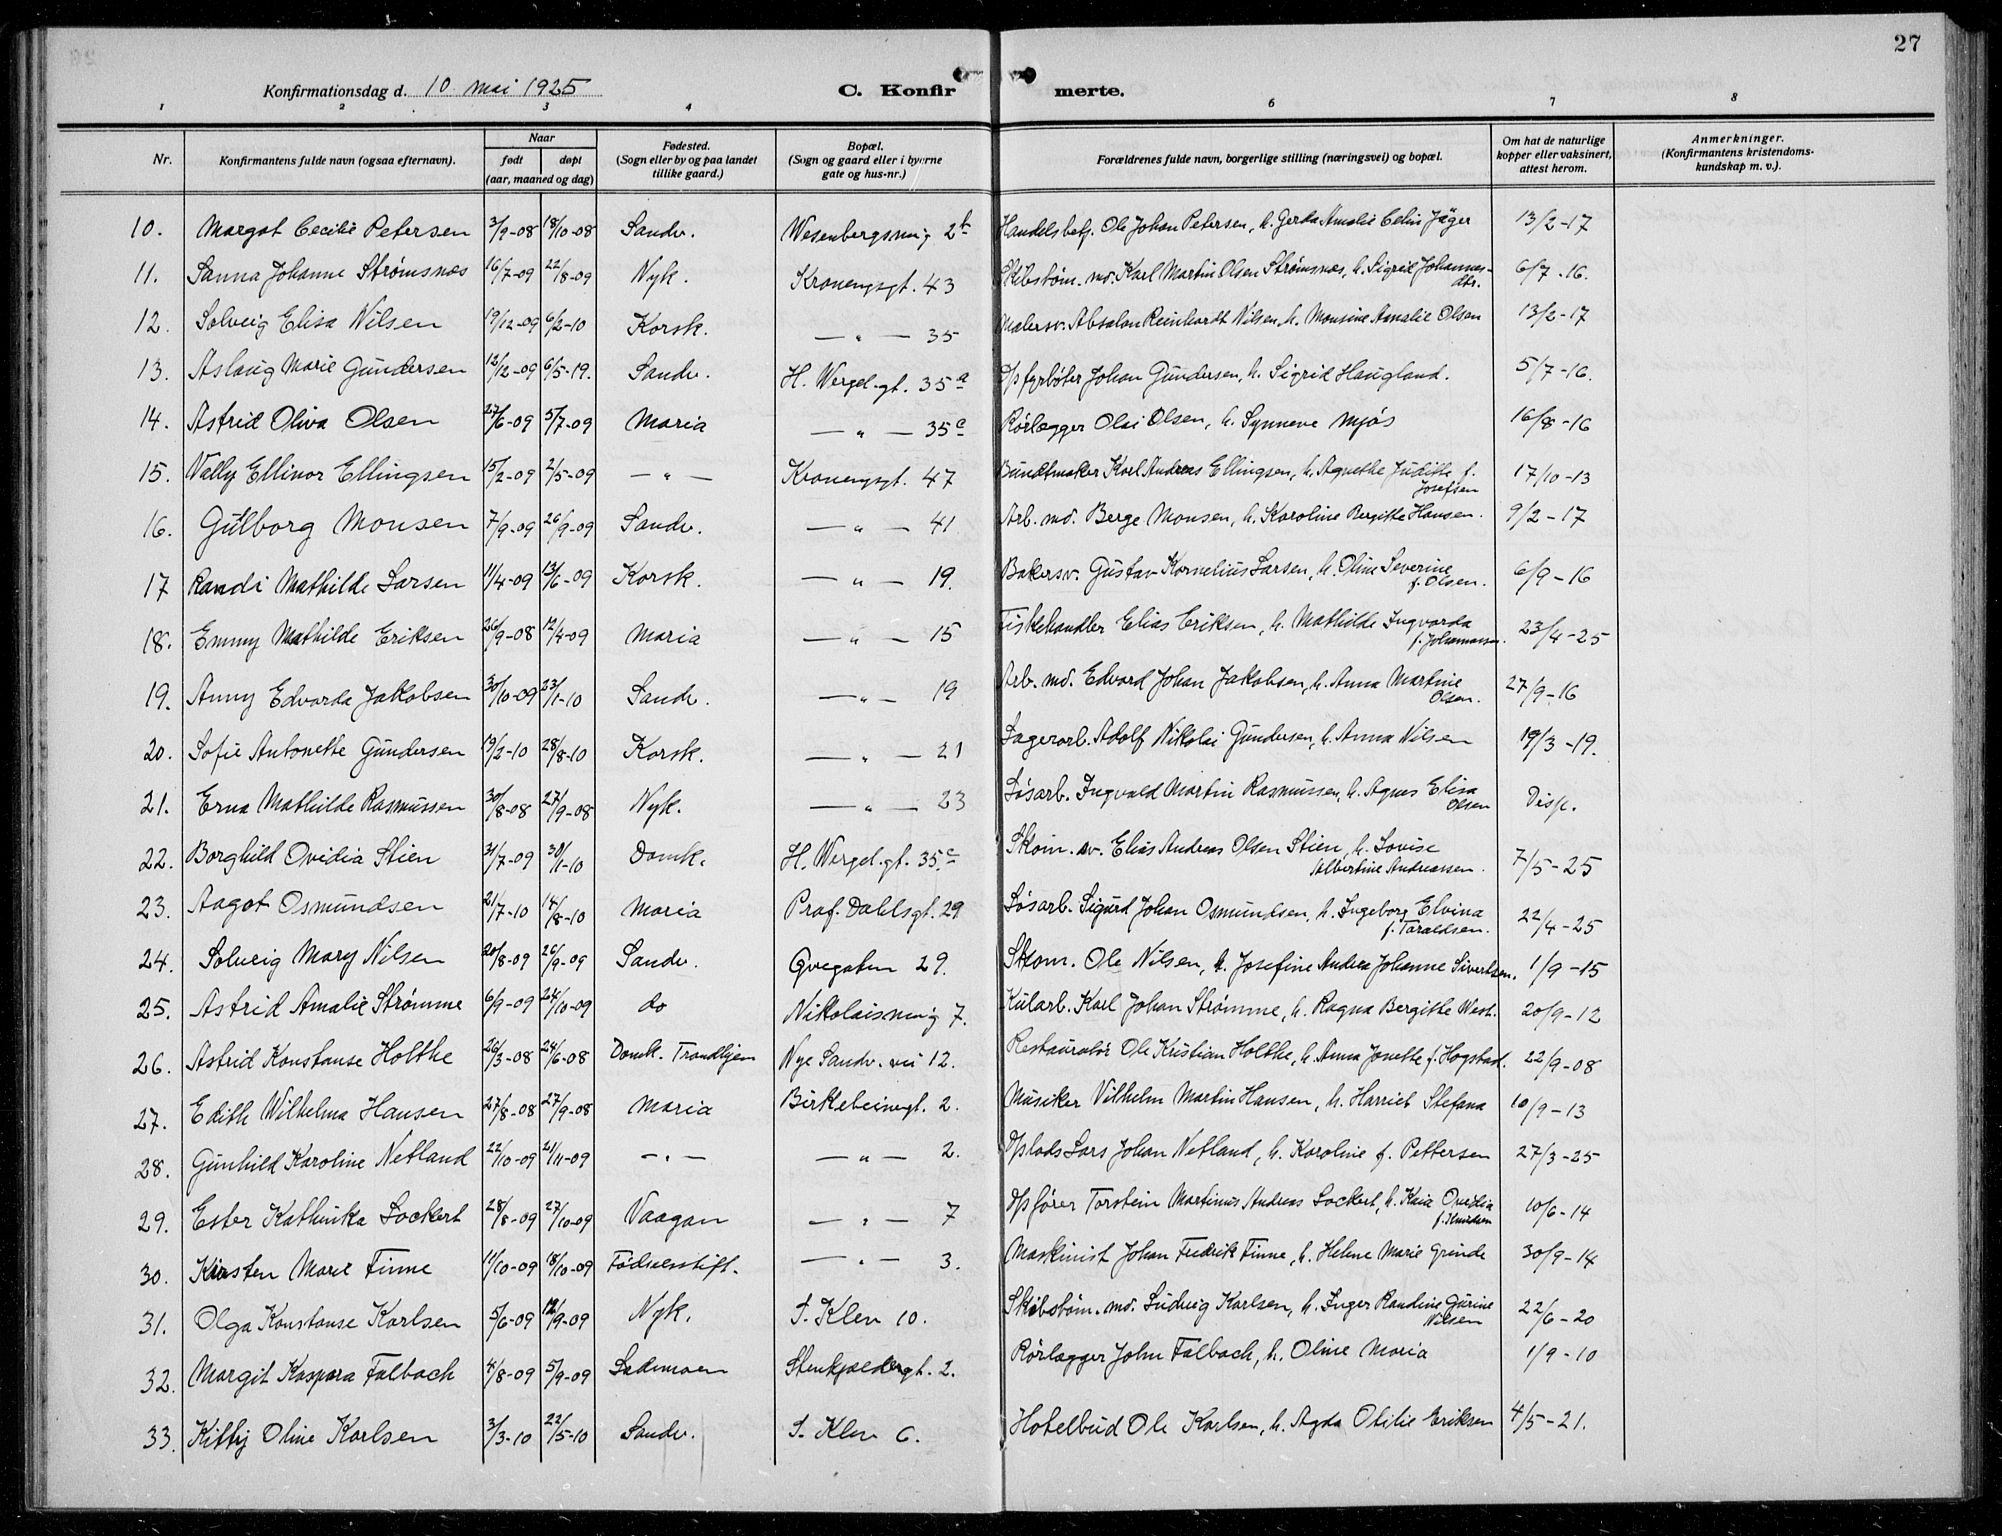 27
Konfirmationsdag d. 10 mai 1925 C. Konfirmerte.
1 2 3 4 6 7 8
Nr. Konfirmantens fulde navn (ogsaa efternavn). Naar født døpt (aar, maaned og dag) Fødested. (Sogn eller by og paa landet tillike gaard.) Bopæl. (Sogn og gaard eller i byerne gate og hus-nr.) Forældrenes fulde navn, borgerlige stilling (næringsvei) og bopæl. Om hat de naturlige kopper eller vaksinert, attest herom. Anmerkninger. (Konfirmantens kristendoms-kundskap m. v.).
10. Margot Cecilie Petersen 3/9-08 18/10-08 Sandv. Wesenbergsmug 2b Handelsbetj. Ole Johan Petersen, h. Gerda Amalie Celin Jäger 13/2-17
11. Sanna Johanne Strømsnes 16/7-09 22/8-09 Nyk. Kronengsgt. 43 Skibstøm. md. Karl Martin Olsen Strømsnes, h. Sigrid Johannes-dtr. 6/7-16.
12. Solveig Elisa Nilsen 19/12-09 6/2-10 Korsk. — " — 35 Malersv. Absalon Reinhardt Nilsen, h. Monsine Amalie Olsen 13/2-17
13. Aslaug Marie Gundersen 12/12-09 6/5-19. Sandv. H. Wergel.gt. 35a Dpfyrbøter Johan Gundersen, h. Sigrid Haugland. 5/7-16.
14. Astrid Oliva Olsen 27/6-09 5/7-09 Maria — " — 35c Rørlægger Olai Olsen, h. Synneve Mjøs 16/8-16
15. Vally Ellinor Ellingsen 15/2-09 2/5-09 — " — Kronengsgt. 47 Bundtmaker Karl Andreas Ellingsen, h. Agnethe Judithe f. Josefsen 17/10-13
16. Gulborg Monsen 7/9-09 26/9-09 Sandv. — " — 41 Arb. md. Berge Monsen, h. Karoline Bergitte Hansen. 9/2-17
17 Randi Mathilde Larsen 11/4-09 13/6-09 Korsk. — " — 19. Bakersv. Gustav Kornelius Larsen, h. Oline Severine f. Olsen. 6/9-16
18. Emmy Mathilde Eriksen 26/9-08 12/4-09 Maria — " — 15 Fiskehandler Elias Eriksen, h. Mathilde Ingvarda f. Johannesen. 23/4-25
19. Anny Edvarda Jakobsen 30/10-09 23/1-10 Sandv. — " — 19 Arb. md. Edvard Johan Jakobsen, h. Anna Martine Olsen. 27/9-16
20. Sofie Antonette Gundersen 19/2-10 28/8-10 Korsk. — " — 21 Lagerarb. Adolf Nikolai Gundersen, h. Anna Nilsen 19/3-19.
21. Erna Mathilde Rasmussen 30/8-08 27/9-08 Nyk. — " — 23 Løsarb. Ingvald Martin Rasmussen, h. Agnes Elisa Olsen Disp.
22. Borghild Ovidia Stien 31/7-09 30/1-10 Domk. H. Wergel.gt. 35c Skom. sv. Elias Andreas Olsen Stien, h. Lovise Albertine Andreassen. 7/5-25
23. Aagot Osmundsen 21/7-10 14/8-10 Maria Prof. Dahlsgt. 29 Løsarb. Sigurd Johan Osmundsen, h. Ingeborg Elvina f. Taraldsen. 22/4-25
24. Solveig Mary Nilsen 20/8-09 26/9-09 Sandv. Øvregaten 29. Skom. Ole Nilsen, h. Josefine Andrea Johanne Sivertsen. 1/9-15
25. Astrid Amalie Strømme 6/9-09 24/10-09 do Nikolaismug 7. Kularb. Karl Johan Strømme, h. Ragna Bergithe West. 20/9-12
26. Astrid Konstanse Holthe 26/3-08 24/6-08 Domk. Trondhjem Nye Sandv. vei 12. Restauratør Ole Kristian Holthe, h. Anna Jonette f. Hogstad. 22/9-08
27. Edith Wilhelma Hansen 27/8-08 27/9-08 Maria Birkebeinergt. 2. Musiker Vilhelm Martin Hansen, h. Harriet Stefana 10/9-13
28. Gunhild Karoline Netland 22/10-09 21/11-09 — " — — " — 2. Dplods Lars Johan Netland, h. Karoline f. Pettersen 27/3-25
29. Ester Kathinka Lockert 28/8-09 27/10-09 Vaagan — " — 7 Dpfører Torstein Martinus Andreas Lockert, h. Kaia Ovidia f. Knudsen 10/6-14
30. Kirsten Marie Finne 11/10-09 18/10-09 Fødselsstift. — " — 3. Maskinist Johan Fredrik Finne, h. Helene Marie Grinde 30/9-14
31. Olga Konstanse Karlsen 5/6-09 12/9-09 Nyk. S. Klev 10. Skibstøm. md. Ludvig Karlsen, h. Inger Randine Gurine Nilsen 22/6-20
32. Margit Kaspara Falbach 4/8-09 5/9-09 Lademoen Stenkjeldergt. 2. Rørlægger John Falbach, h. Oline Maria 1/9-10
33. Kitty Oline Karlsen 3/3-10 22/5-10 Sandv. S. Klev 6. Hotelbud Ole Karlsen, h. Agda Otilie Eriksen 4/5-21.